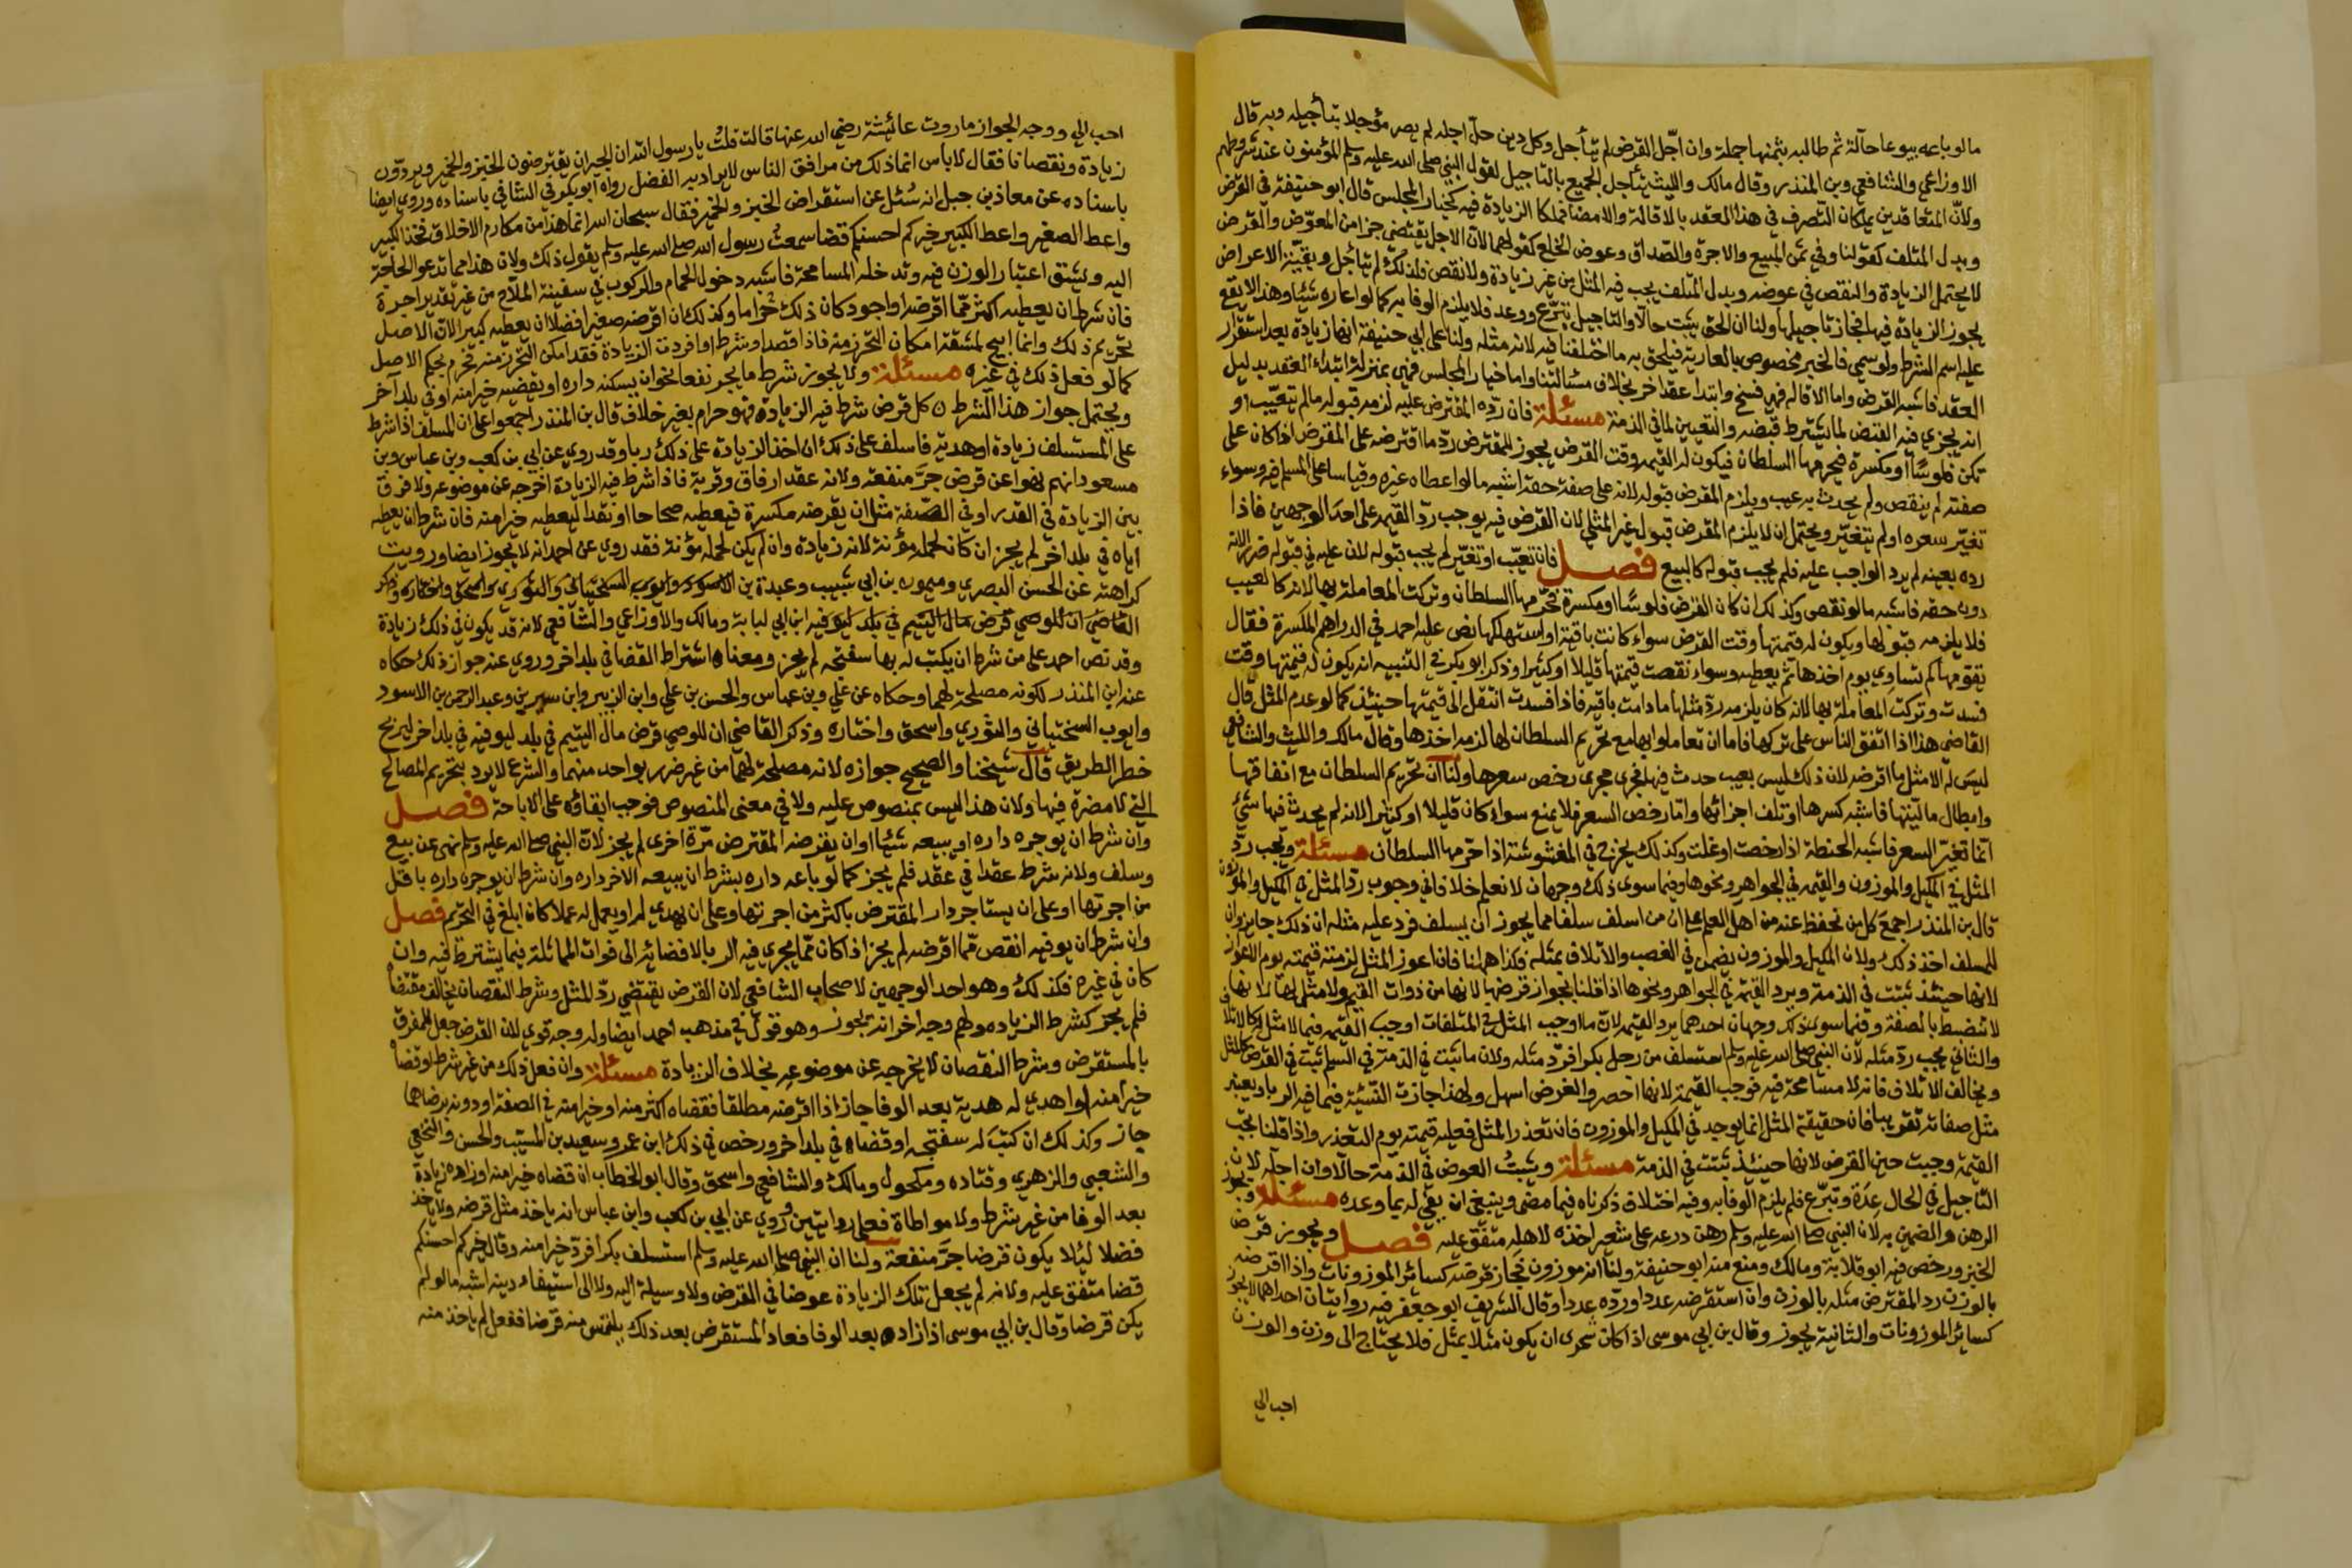 مالو باعه بيوعا حالّة ثم طالبه بثمنها جملة وان اجّل القرض لم يتأجل وكل دين حلّ اجله لم يصر مؤجلا بتأجيله وبه قال
الاوزاعي والشافعي وبن المنذر وقال مالك والليث يتأجل الجميع بالتاجيل لقول النبي صلى الله عليه وسلم المؤمنون عند شروطهم
ولانّ المتعاقدين يملكان التصرف في هذا العقد بالاقالة والامضا فملكا الزيادة فيه كخيار المجلس قال ابو حنيفة في القرض
وبدل المتلف كقولنا وفي ثمن المبيع والاجرة والصداق وعوض الخلع كقولهما لانّ الاجل يقتضي جزا من المعوّض والقرض
لا يحتمل الزيادة والنقص في عوضه وبدل المتلف يجب فيه المثل من غير زيادة ولا نقص فلذلك لم يتأجل وبقيّة الاعواض
يجوز الزيادة فيها فجاز تاجيلها ولنا ان الحق يثبت حالّا والتاجيل تبرّع ووعد فلا يلزم الوفا به كما لو اعاره شيئا وهذا لا يقع
عليه اسم الشرط ولو سمي فالخبر مخصوص بالعارية فيلحق به ما اختلفنا فيه لانه مثله ولنا على ابي حنيفة انها زيادة بعد استقرار
العقد فاشبه القرض واما الاقالة فهي فسخ وابتدا عقد اخر بخلاف مسئالتنا واما خيار المجلس فهي بمنزلة ابتداء العقد بدليل
انه يجزي فيه القبض لما يشترط قبضه والتعيين لما في الذمة مسئلة فان ردّه المقترض عليه لزمه قبوله مالم يتعيّب او
تكن فلوسًا او مكسرة فيحرمها السلطان فيكون له القيمه وقت القرض يجوز للمقترض ردّ ما اقترضه على المقرض اذا كان على
صفته لم ينقص ولم يحدث به عيب ويلزم المقرض قبوله لانه على صفة حقه اشبه مالو اعطاه غيره وقياسا على المسلم فيه وسواء
تغيّر سعره او لم يتغيّر ويحتمل ان لا يلزم المقرض قبول غير المثلي لان القرض فيه يوجب ردّ القيمه على احد الوجهين فاذا
رده بعينه لم يرد الواجب عليه فلم يجب قبوله كالبيع فصل فان تعيّب او تغيّر لم يجب قبوله لان عليه في قبوله ضررا لانه
دون حقه فاشبه مالو نقص وكذلك ان كان القرض فلوسًا او مكسرة فحرّمها السلطان وتركت المعاملة بها لانه كالعيب
فلا يلزمه قبولها ويكون له قيمتها وقت القرض سواء كانت باقية او استهلكها نص عليه احمد في الدراهم المكسرة فقال
تقوّمها كم تساوي يوم اخذها ثم يعطيه وسواء نقصت قيمتها قليلا او كثيرا وذكر ابو بكر في التنبيه انه يكون له قيمتها وقت
فسدت وتركت المعاملة بها لانه كان يلزمه ردّ مثلها ما دامت باقيه فاذا فسدت انتقل الى قيمتها حينئذ كما لو عدم المثل قال
القاضي هذا اذا اتفق الناس على تركها فاما ان تعاملوا بها مع تحريم السلطان لها لزمه اخذها وقال مالك والليث والشافعي
ليس له الا مثل ما اقرضه لان ذلك ليس بعيب حدث فيها فجرى مجرى رخص سعرها ولنا ان تحريم السلطان مع انفاقها
وابطال ماليّتها فاشبه كسرها او تلف اجزائها وامّا رخص السعر فلا يمنع سواء كان قليلا او كثيرا لانه لم يحدث فيها شئ
انما تغيّر السعر فاشبه الحنطة اذا رخصت او غلت وكذلك يخرج في المغشوشة اذا حرّمها السلطان مسئلة ويجب ردّ
المثل في المكيل والموزون والقيمه في الجواهر ونحوها وفيما سوى ذلك وجهان لا نعلم خلافا في وجوب ردّ المثل في المكيل والموزون
قال بن المنذر اجمع كل من نحفظ عنه من اهل العلم على ان من اسلف سلفا مما يجوز ان يسلف فرد عليه مثله ان ذلك جايز وان
للمسلف اخذ ذلك ولان المكيل والموزون يضمن في الغصب والاتلاف بمثله فكذا ههنا فان اعوز المثل لزمته قيمته يوم الاعواز
لانها حينئذ ثبتت في الذمة ويرد القيمه في الجواهر ونحوها اذا قلنا بجواز قرضها لانها من ذوات القيم ولا مثل لها لانها
لا تنضبط بالصفة وفيما سوى ذلك وجهان احدهما يرد القيمه لانّ ما اوجب المثل في المتلفات اوجب القيمه فيما لا مثل له كالاتلاف
والثاني يجب ردّ مثله لان النبي صلى الله عليه وسلم استسلف من رجل بكرا فردّ مثله ولان ما ثبت في الذمة في السلم ثبت في القرض كالمثلي
ويخالف الاتلاف فانه لا مسامحة فيه فوجب القيمة لانها احصر والقرض اسهل ولهذا جازت النّسيئة فيما فيه الربا ويعتبر
مثل صفاته تقريبا فان حقيقة المثل انما يوجد في المكيل والموزون فان تعذر المثل فعليه قيمته يوم التعذر واذا قلنا يجب
القيمة وجبت حين القرض لانها حينئذ ثبتت في الذمة مسئلة ويثبتُ العوض في الذمة حالا وان اجله لان
التاجيل في الحال عِدَة وتبرّع فلم يلزم الوفا به وفيه اختلاف ذكرناه فيما مضى وينبغي ان يفي له بما وعده مسئلة ويجوز
الرهن والضمين به لان النبي صلى الله عليه وسلم رهن درعه على شعير اخذه لاهله متفق عليه فصل ويجوز قرض
الخبز ورخص فيه ابو قلابة ومالك ومنع منه ابو حنيفة ولنا انه موزون فجاز قرضه كسائر الموزونات واذا اقرضه
بالوزن رد المقترض مثله بالوزن وان استقرضه عددا وردّه عددا وقال الشريف ابو جعفر فيه روايتان احداهما لا يجوز
كسائر الموزونات والثانية يجوز وقال بن ابي موسى اذا كان تحرى ان يكون مثلا بمثل فلا يحتاج الى وزن والوزن
احب الي
احب الي ووجه الجواز ما روت عائشة رضي الله عنها قالت قلتُ يارسول الله ان الجيران يقترضون الخبز والخمير ويردّون
زيادة ونقصانا فقال لا باس انما ذلك من مرافق الناس لا يراد به الفضل رواه ابو بكر في الشافي باسناده وروي ايضا
باسناده عن معاذ بن جبل انه سُئل عن استقراض الخبز والخمير فقال سبحان الله انما هذا من مكارم الاخلاق فخذ الكبير
واعط الصغير واعط الكبير خيركم احسنكم قضا سمعتُ رسول الله صلى الله عليه وسلم يقول ذلك ولان هذا مما تدعو الحاجة
اليه ويشق اعتبار الوزن فيه وتدخله المسامحة فاشبه دخول الحمام والركوب في سفينة الملاّح من غير تقدير اجرة
فان شرط ان يعطيه اكثر ممّا اقرضه او اجود كان ذلك حراما وكذلك ان اقرضه صغيرا فضلا ان يعطيه كبيرا لان الاصل
تحريم ذلك وانما ابيح لمشقة امكان التحرز منه فاذا قصد او شرط او افردت الزيادة فقد امكن التحرّز منه فحرم بحكم الاصل
كما لو فعل ذلك في غيره مسئلة ولا يجوز شرط ما يجر نفعا نحو ان يسكنه داره او يقضيه خيرا منه او في بلد آخر
ويحتمل جواز هذا الشرط كل قرض شرط فيه الزيادة فهو حرام بغير خلاف قال بن المنذر اجمعوا على ان المسلف اذا شرط
على المستسلف زيادة او هدية فاسلف على ذلك ان اخذ الزيادة على ذلك ربا وقد روي عن ابي بن كعب وبن عباس وبن
مسعود انهم نهوا عن قرض جرّ منفعة ولانه عقد ارفاق وقربة فاذا شرط فيه الزيادة اخرجه عن موضوعه ولا فرق
بين الزيادة في القدر او في الصفة مثل ان يقرضه مكسرة فيعطيه صحاحا او نقدا ليعطيه خيرا منه فان شرط ان يعطيه
اياه في بلد اخر لم يجز ان كان لحمله مؤنة لانه زيادة وان لم يكن لحمله مؤنة فقد روي عن احمد انه لا يجوز ايضا ورويت
كراهته عن الحسن البصري وميمون بن ابي شبيب وعبدة بن
وقد نص احمد على من شرط ان يكتب له بها سفتجه لم يجز ومعناه اشتراط القضا في بلد اخر وروي عنه جواز ذلك حكاه
عنه ابن المنذر لكونه مصلحة لهما وحكاه عن علي وبن عباس والحسن بن علي وابن الزبير وابن سيرين وعبد الرحمن بن الاسود
وايوب السختياني والثوري واسحق واختاره وذكر القاضي ان للوصي قرض مال اليتيم في بلد ليوفيه في بلد اخر ليربح
خطر الطريق قال شيخنا والصحيح جوازه لانه مصلحة لهما من غير ضرر بواحد منهما والشرع لا يرد بتحريم المصالح
التي لا مضرة فيها ولان هذا ليس بمنصوص عليه ولا في معنى المنصوص فوجب ابقاؤه على الاباحة فصل
وان شرط ان يوجره داره او يبيعه شيئا او ان يقرضه المقترض مرّة اخرى لم يجز لانّ النبي صلى الله عليه وسلم نهى عن بيع
وسلف ولانه شرط عقدا في عقد فلم يجز كما لو باعه داره بشرط ان يبيعه الاخر داره وان شرط ان يوجره داره باقل
من اجرتها او على ان يستاجر دار المقترض باكثر من اجرتها وعلى ان يهدي له او يعمل له عملا كان ابلغ في التحريم فصل
وان شرط ان يوفيه انقص ممّا اقرضه لم يجز اذا كان ممّا يجري فيه الربا لافضائه الى فوات المماثلة فيما يشترط فيه وان
كان في غيره فكذلك وهو احد الوجهين لاصحاب الشافعي لان القرض يقتضي ردّ المثل وشرط النقصان يخالف مقتضاه
فلم يجز كشرط الزياده ولهم وجه اخر انه يجوز وهو قول في مذهب احمد ايضا وله وجه قوي لان القرض جعل للرفق
بالمستقرض وشرط النقصان لا يخرجه عن موضوعه بخلاف الزيادة مسئلة وان فعل ذلك من غير شرط او قضاه
خيرا منه او اهدى له هدية بعد الوفا جاز اذا اقرضه مطلقا فقضاه اكثر منه او خيرا منه في الصفة او دونه برضاهما
جاز وكذلك ان كتب له سفتجه او قضاه في بلد اخر ورخص في ذلك ابن عمر وسعيد بن المسيّب والحسن والنخعي
والشعبي والزهري وقتاده ومكحول ومالك والشافعي واسحق وقال ابو الخطاب ان قضاه خيرا منه او زاده زيادة
بعد الوفا من غير شرط ولا مواطاة فعلى روايتين وروي عن ابي بن كعب وابن عباس انه ياخذ مثل قرضه ولا ياخذ
فضلا ليئلا يكون قرضا جرّ منفعة ولنا ان النبي صلى الله عليه وسلم استسلف بكرا فردّ خيرا منه وقال خيركم احسنكم
قضا متفق عليه ولانه لم يجعل تلك الزيادة عوضا في القرض ولا وسيلة اليه ولا الى استيفاء دينه اشبه مالو لم
يكن قرضا وقال بن ابي موسى اذا زاده بعد الوفا فعاد المستقرض بعد ذلك يلتمس منه قرضا ففعل لم ياخذ منه